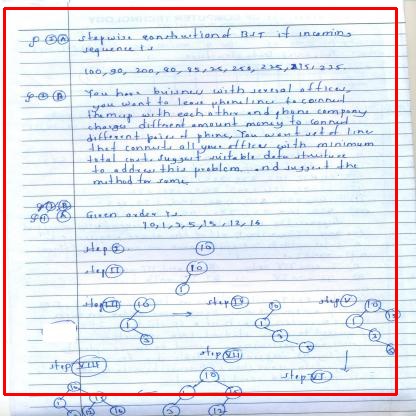 Q ② A stepwise construction of BST if incoming
sequence is
100, 90, 200, 80, 85, 25, 250, 225, 215, 235.
Q ② B You have business with several offices,
you want to lease phone line to connect
them up with each other and phone company
charges different amount money to connect
different pairs of phone, You want set of line
that connects all your offices with minimum
total cost. suggest suitable data structure
to address this problem. and suggest the
method for same
Q ① A Given order is
10, 1, 3, 5, 15, 12, 16
step I 10
step II 10
1
step III 10 step IV 10 step V 10
1 1 1 15
3 3 3
5 5
step VII step VI
step VIII 10 10
1 15 1 15
3 12 16 3 12